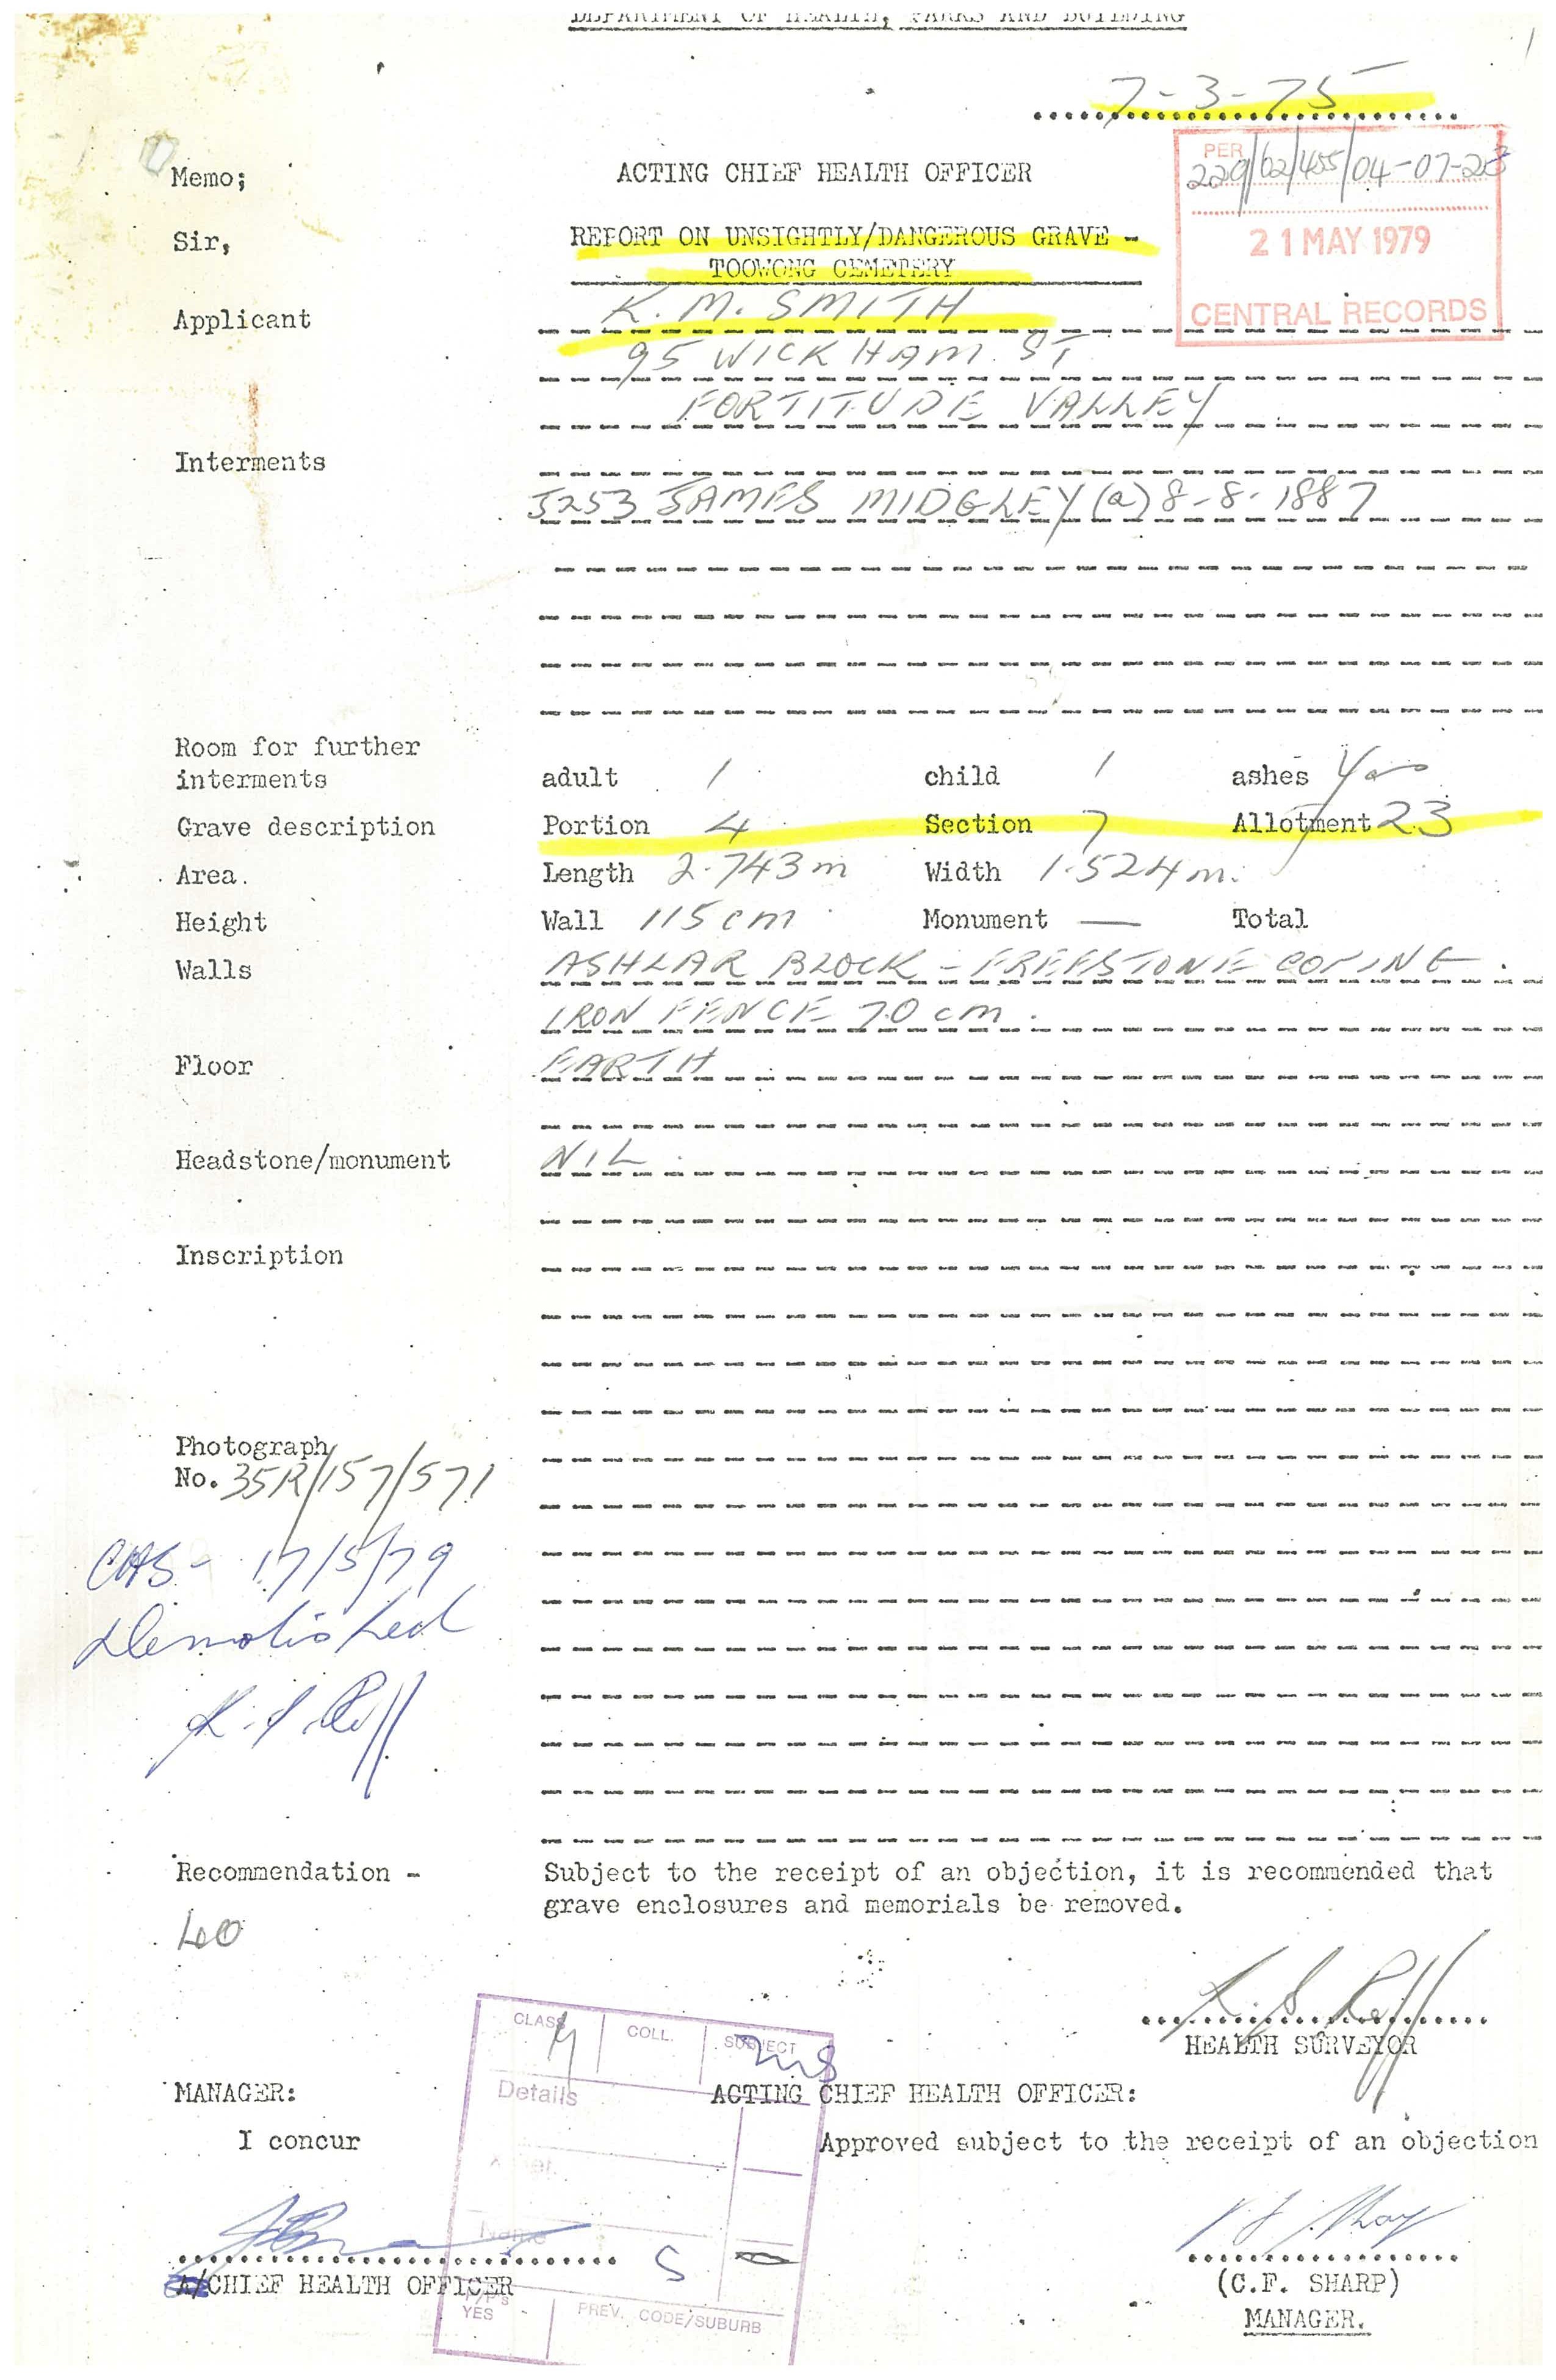 DEPARTMENT OF HEALTH, PARKS AND BUILDING
7-3-75
PER
229/62/455/04-07-23
21 MAY 1979
CENTRAL RECORDS
Memo; ACTING CHIEF HEALTH OFFICER
Sir, REPORT ON UNSIGHTLY/DANGEROUS GRAVE -
TOOWONG CEMETERY
Applicant K. M. SMITH
95 WICKHAM. ST
FORTITUDE VALLEY
Interments
J253 JAMES MIDGLEY (a) 8-8-1887
Room for further
interments adult 1 child 1 ashes Yes
Grave description Portion 4 Section 7 Allotment 23
Area. Length 2.743m Width 1.524m.
Height Wall 115cm Monument — Total
Walls ASHLAR BLOCK - FREESTONE COPING.
IRON FENCE 70cm.
Floor EARTH
Headstone/monument NIL.
Inscription
Photograph
No. 35R/157/571
CAS - 17/5/79
Demolished
Recommendation - Subject to the receipt of an objection, it is recommended that
grave enclosures and memorials be removed.
HEALTH SURVEYOR
CLASS COLL. SUBJECT
Details
MANAGER: ACTING CHIEF HEALTH OFFICER:
I concur Approved subject to the receipt of an objection
Name
S
A/CHIEF HEALTH OFFICER (C.F. SHARP)
YES PREV. CODE/SUBURB
MANAGER.